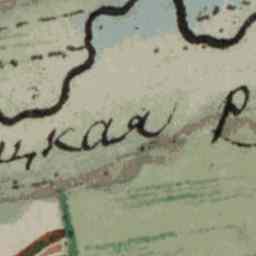 цкая Р